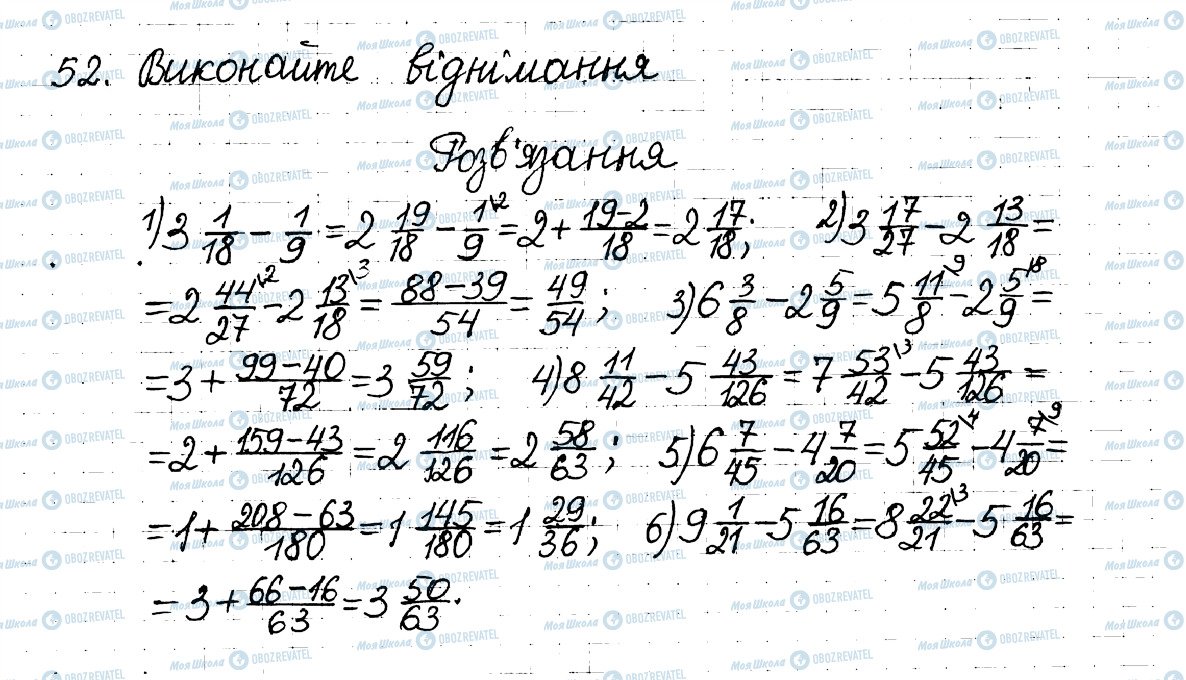 52. Виконайте віднімання
Розв'язання
1) 3 1/18 − 1/9 = 2 19/18 − 1/9 \2 = 2 + (19−2)/18 = 2 17/18; 2) 3 17/27 − 2 13/18 =
= 2 44/27 \2 − 2 13/18 \3 = (88−39)/54 = 49/54; 3) 6 3/8 − 2 5/9 = 5 11/8 \9 − 2 5/9 \8 =
= 3 + (99−40)/72 = 3 59/72; 4) 8 11/42 − 5 43/126 = 7 53/42 \3 − 5 43/126 =
= 2 + (159−43)/126 = 2 116/126 = 2 58/63; 5) 6 7/45 − 4 7/20 = 5 52/45 \4 − 4 7/20 \9 =
= 1 + (208−63)/180 = 1 145/180 = 1 29/36; 6) 9 1/21 − 5 16/63 = 8 22/21 \3 − 5 16/63 =
= 3 + (66−16)/63 = 3 50/63.
Моя Школа OBOZREVATEL